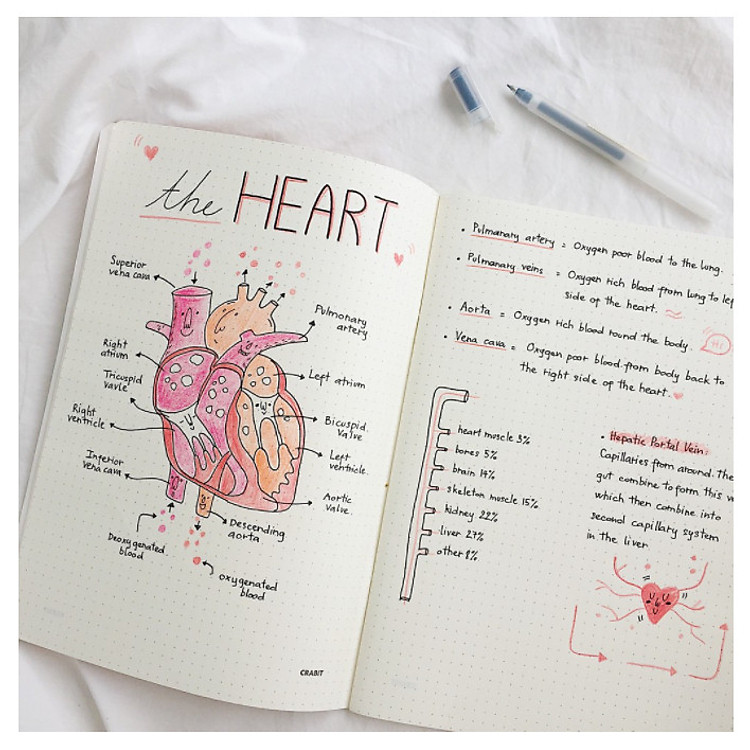 the HEART
Superior
vena cava
Right
atrium
Tricuspid
vavle
Right
ventricle
Inferior
vena cava
Deoxygenated
blood
Pulmonary
artery
Left atrium
Bicuspid
valve
Left
ventricle.
Aortic
valve.
Descending
aorta
oxygenated
blood
CRABIT
• Pulmanary artery = Oxygen poor blood to the lung.
• Pulmanary veins = Oxygen rich blood from lung to lef
side of the heart.
• Aorta = Oxygen rich blood round the body.
Hi
• Vena cava = Oxygen poor blood from body back to
the right side of the heart.
heart muscle 3%
bones 5%
brain 14%
skeleton muscle 15%
kidney 22%
liver 27%
other 8%
• Hepatic Portal Vein:
Capillaries from around. The
gut combine to form this v
which then combine into
second capillary system
in the liver